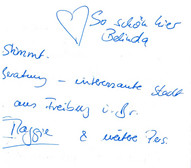 So schön hier
Belinda
Stimmt.
Beratung – interessante Stadt
aus Freiburg i. Br.
Maggie & weitere Pers.